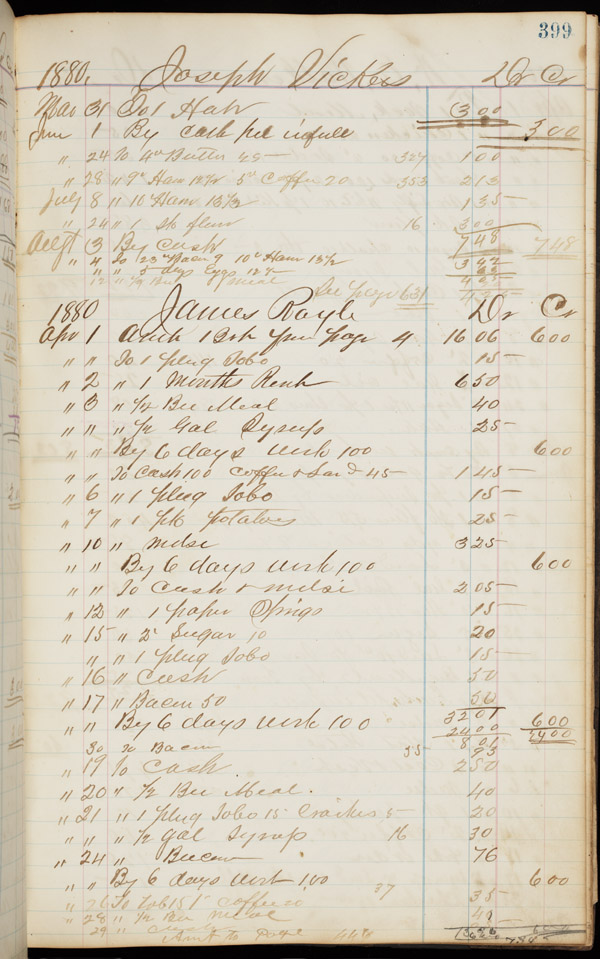 399
1880. Joseph Vickers Dr Cr
May 31 To 1 Hat 3 00
June 1 By cash pr in full 3 00
" 24 To 4# Butter 25 — 327 1 00
" 28 " 9# Ham 12½ 5# Coffee 20 353 2 13
July 8 " 10# Ham 13½ 1 35
" 24 " 1 sk flour 16 3 00
Augt 3 By Cash 7 48 7 48
" 4 To 23# Bacon 9 10# Ham 13½ 3 42
" " " 5 doz Eggs 12½
" 12 " ½ Bu meal
See page 631
1880 James Royle Dr Cr
Apr 1 Amt Brt from page 4 16 06 6 00
" " To 1 plug Tobo 15
" 2 " 1 Months Rent 6 50
" 3 " ½ Bu Meal 40
" " " ½ Gal Syrup 25
" " By 6 days work 1 00 6 00
" " To Cash 1 00 Coffee & Lard 45 1 45
" 6 " 1 plug Tobo 15
" 7 " 1 pk potatoes 25
" 10 " mdse 3 25
" " By 6 days work 1 00 6 00
" " To Cash & mdse 2 05
" 12 " 1 paper 15
" 15 " 2# Sugar 10 20
" " " 1 plug Tobo 15
" 16 " Cash 50
" 17 " Bacon 50 50
" " By 6 days work 1 00 32 01 6 00
24 00 24 00
8 01
30 To Bacon 55 95
" 19 To Cash 2 50
" 20 " ½ Bu Meal. 40
" 21 " 1 plug Tobo 15 Crackers 5 20
" " " ½ gal Syrup 16 30
" 24 " Bacon 76
" " By 6 days work 1 00 6 00
" 26 To Tob 15 1# Coffee 20 37 35
" 28 " ½ Bu meal 40
29 "
Amt to Page 448